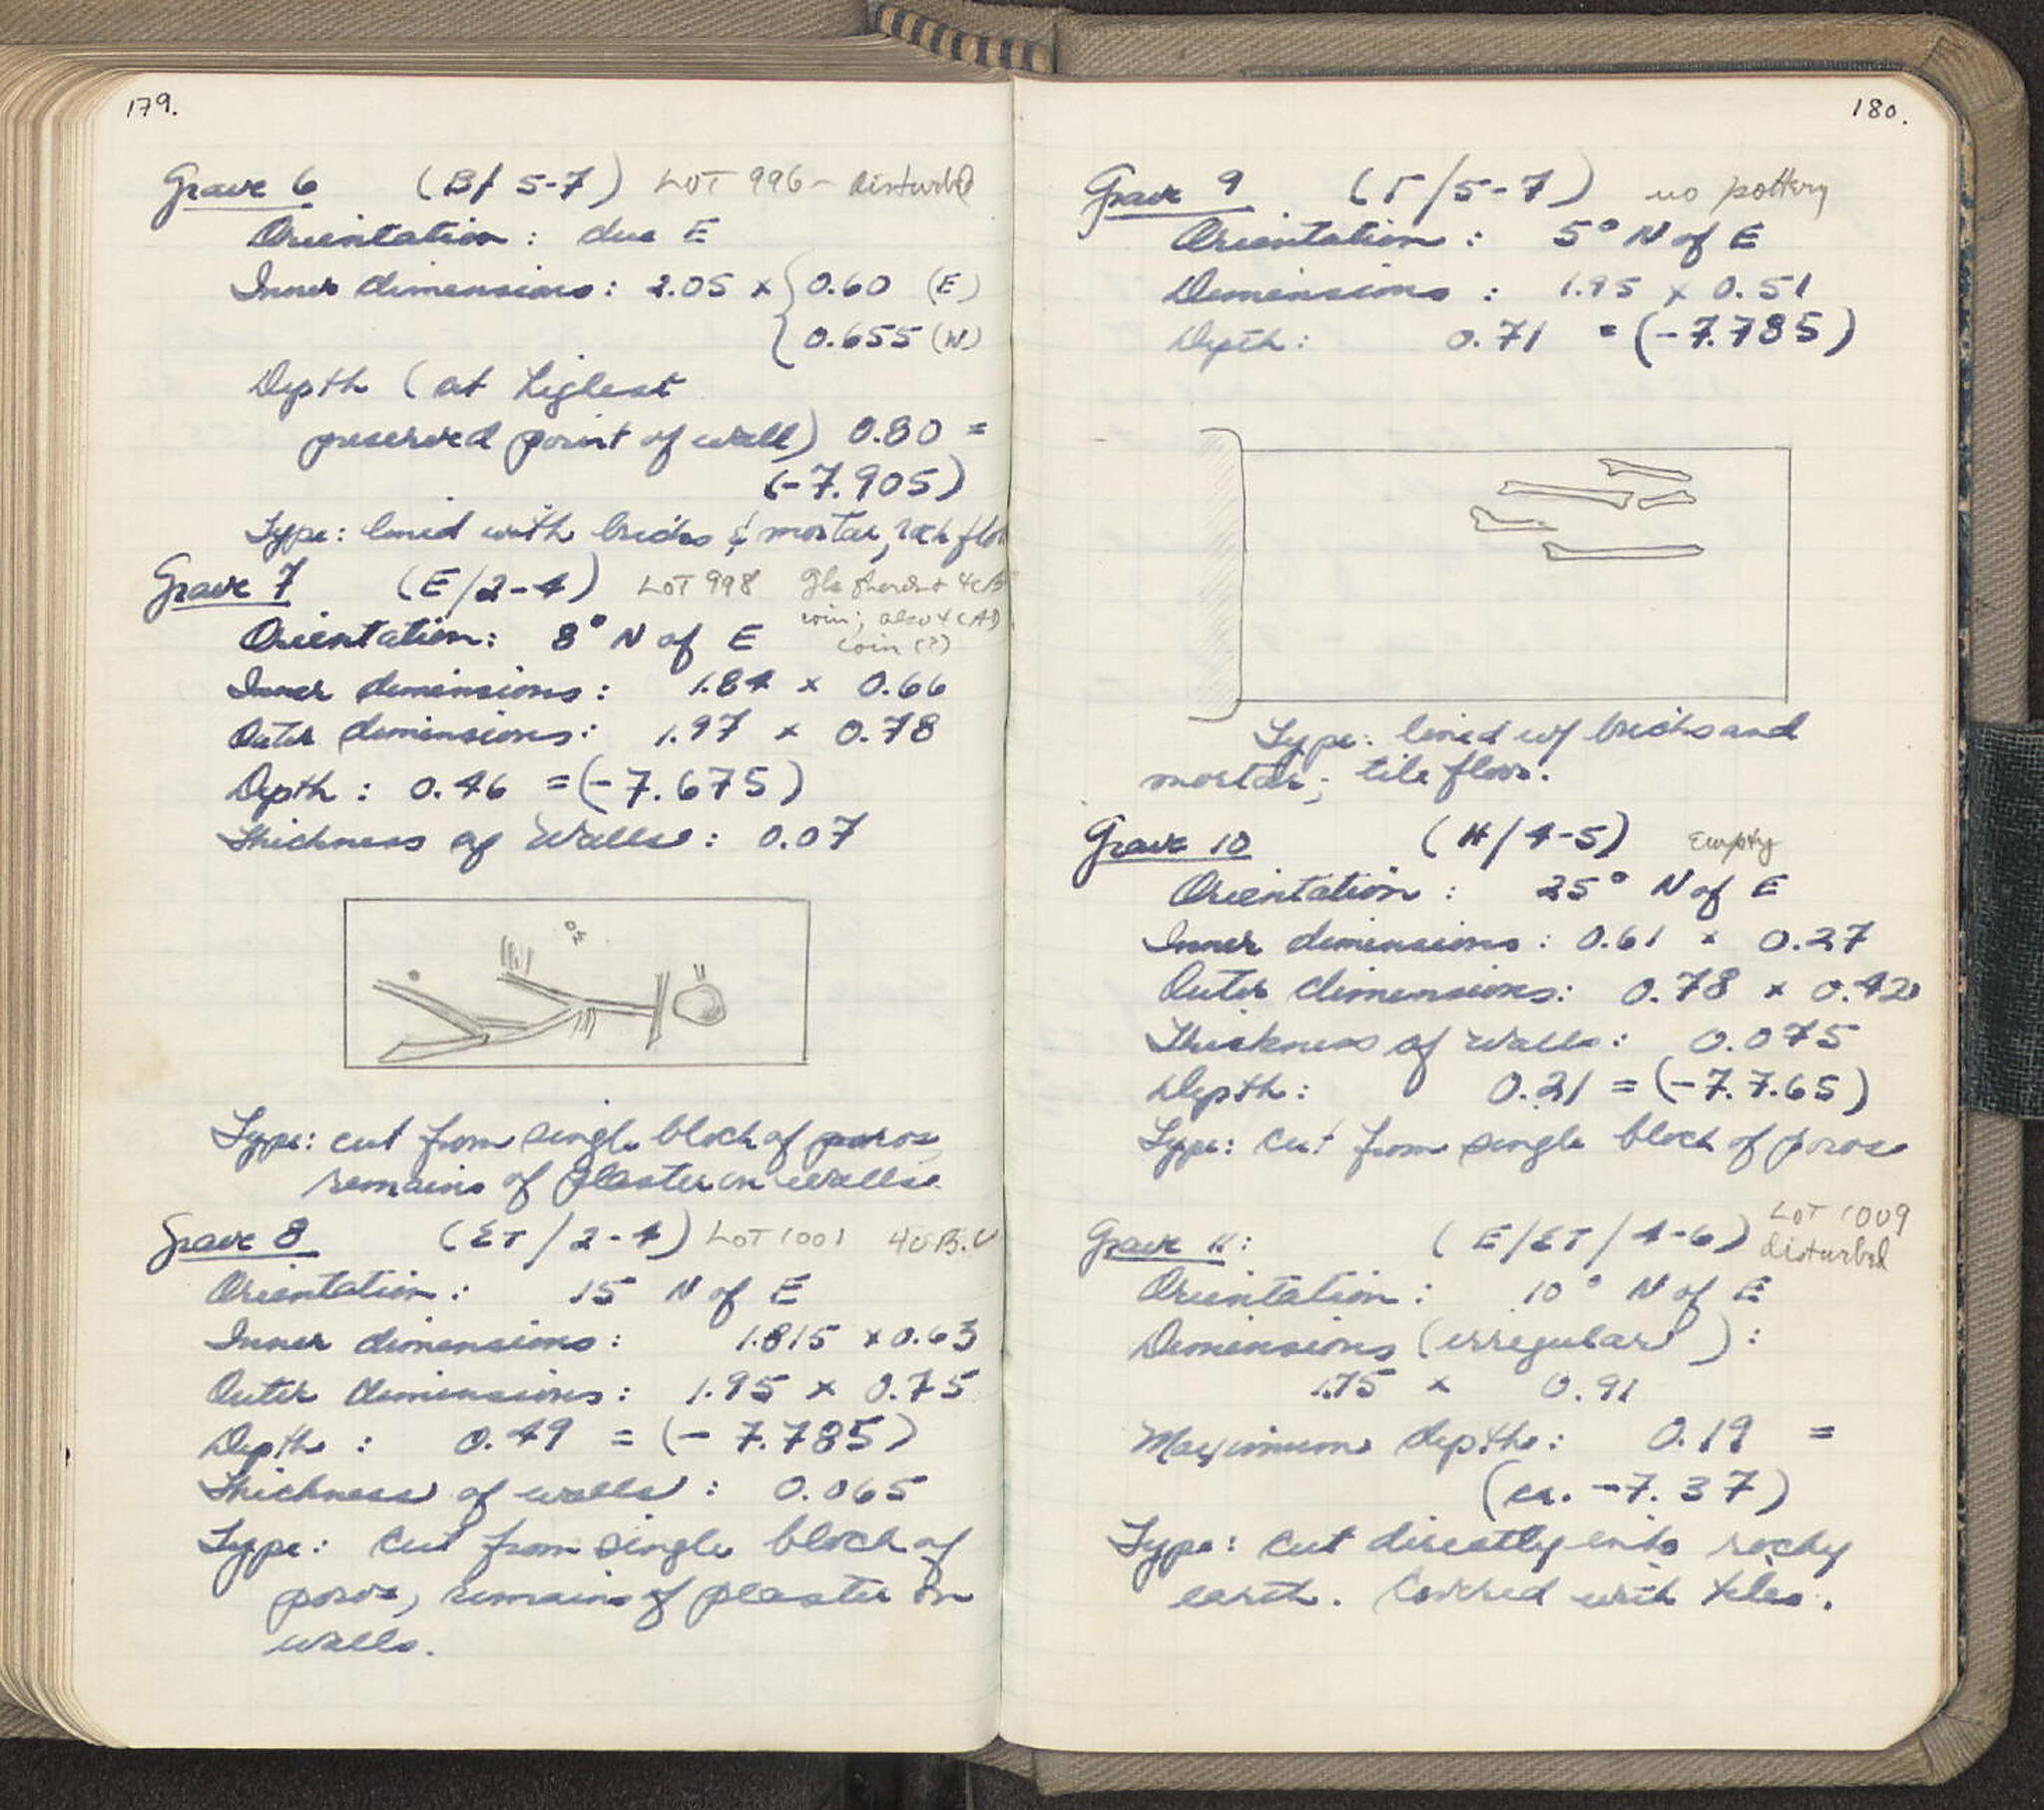 179.
Grave 6 (B/ 5-7) LOT 996 - disturbed
Orientation: due E
Inner dimensions: 2.05 x { 0.60 (E)
{ 0.655 (W)
Depth (at highest
preserved point of wall) 0.80 =
(-7.905)
Type: lined with bricks & mortar, rock floor
Grave 7 (E/2-4) LOT 998
coin; also 4c AD
coin (?)
Orientation: 8° N of E
Inner dimensions: 1.84 x 0.66
Outer dimensions: 1.97 x 0.78
Depth: 0.46 = (-7.675)
Thickness of Walls: 0.07
Type: cut from single block of poros,
remains of plaster on walls.
Grave 8 (ET/2-4) LOT 1001 4c B.C
Orientation: 15 N of E
Inner dimensions: 1.815 x 0.63
Outer dimensions: 1.95 x 0.75
Depth: 0.49 = (-7.785)
Thickness of walls: 0.065
Type: cut from single block of
poros, remains of plaster on
walls.
180.
Grave 9 (Γ/5-7) no pottery
Orientation: 5° N of E
Dimensions: 1.95 x 0.51
Depth: 0.71 = (-7.785)
Type: lined w/ bricks and
mortar; tile floor.
Grave 10 (H/4-5) Empty
Orientation: 25° N of E
Inner dimensions: 0.61 x 0.27
Outer dimensions: 0.78 x 0.42
Thickness of Walls: 0.075
Depth: 0.21 = (-7.7.65)
Type: cut from single block of poros
Grave 11: (E/ET/4-6) LOT 1009
disturbed
Orientation: 10° N of E
Dimensions (irregular):
1.75 x 0.91
Maximum depth: 0.19 =
(ca. -7.37)
Type: cut directly into rocky
earth. Covered with tiles.